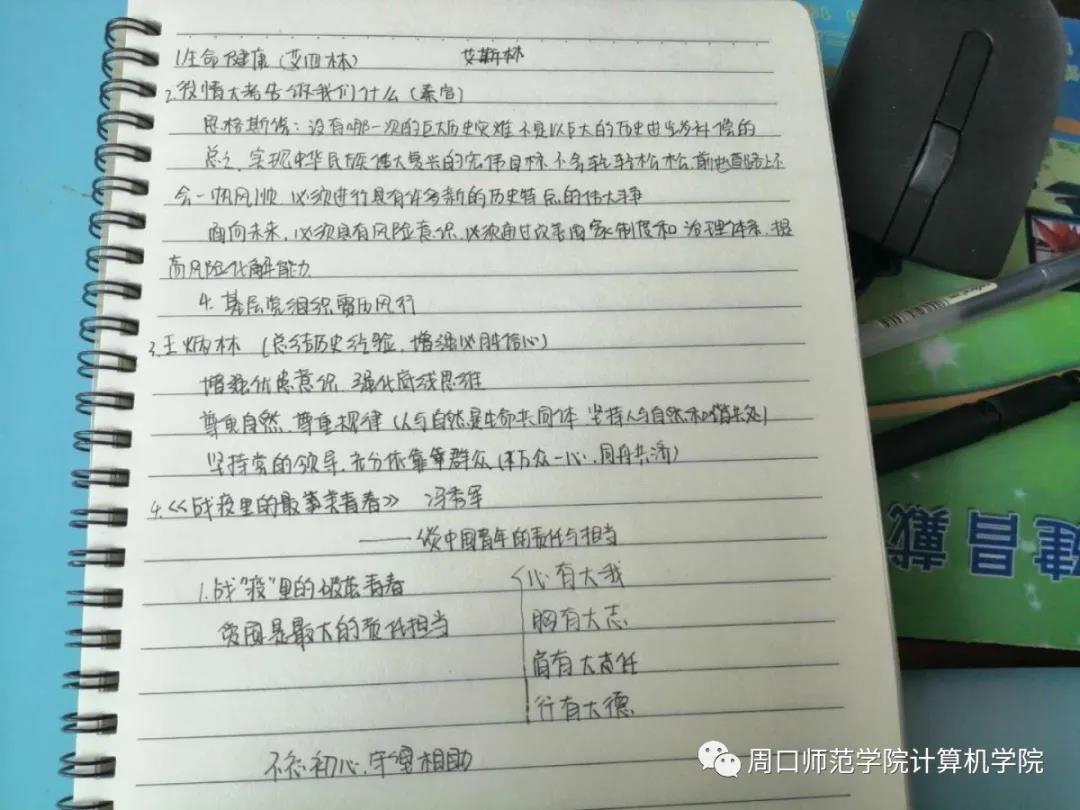 1.生命健康(艾四林) 艾斯林
2.疫情大考告诉我们什么(秦宣)
恩格斯偖:没有哪一次的巨大历史灾难不是以巨大的历史进步为补偿的
总之,实现中华民族伟大复兴的宏伟目标不会轻轻松松,前进道路上不
会一帆风顺,必须进行具有许多新的历史特点的伟大斗争
面向未来,必须具有风险意识,必须通过改善国家制度和治理体系,提
高风险化解能力
4.基层党组织雷厉风行
3.王炳林(总结历史经验,增强必胜信心)
增强忧患意识,强化底线思维
尊重自然,尊重规律(人与自然是生命共同体,坚持人与自然和谐共处)
坚持党的领导,充分依靠群众(万众一心,同舟共济)
4.《战疫里的最美青春》 冯秀军
——谈中国青年的责任与担当
1.战"疫"里的破茧青春
爱国是最大的责任担当
心有大我
胸有大志
肩有大责任
行有大德
不忘初心,守望相助
建昌戴
周口师范学院计算机学院